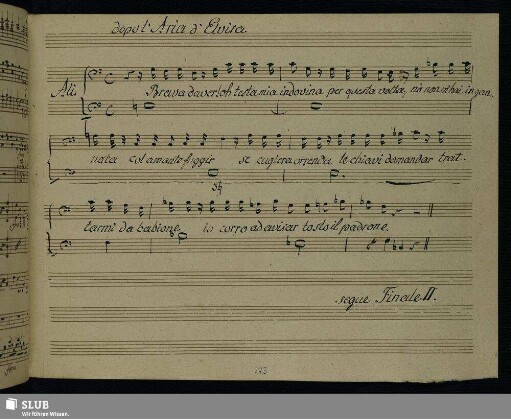 dopo l'Aria d'Elvira.
Ali
Brava davver oh testa mia indovina per questa volta, nò non m'hai ingan,
nata col amante fuggir se cugliera orrenda le chiavi domandar trat-
tarmi da babione, io corro ad avisar tosto il padrone.
segue Finale II.
193
SLUB
Wir führen Wissen.